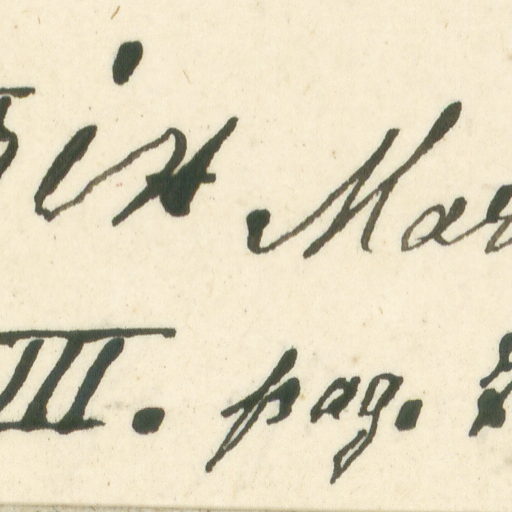 ix Mar
III. pag.